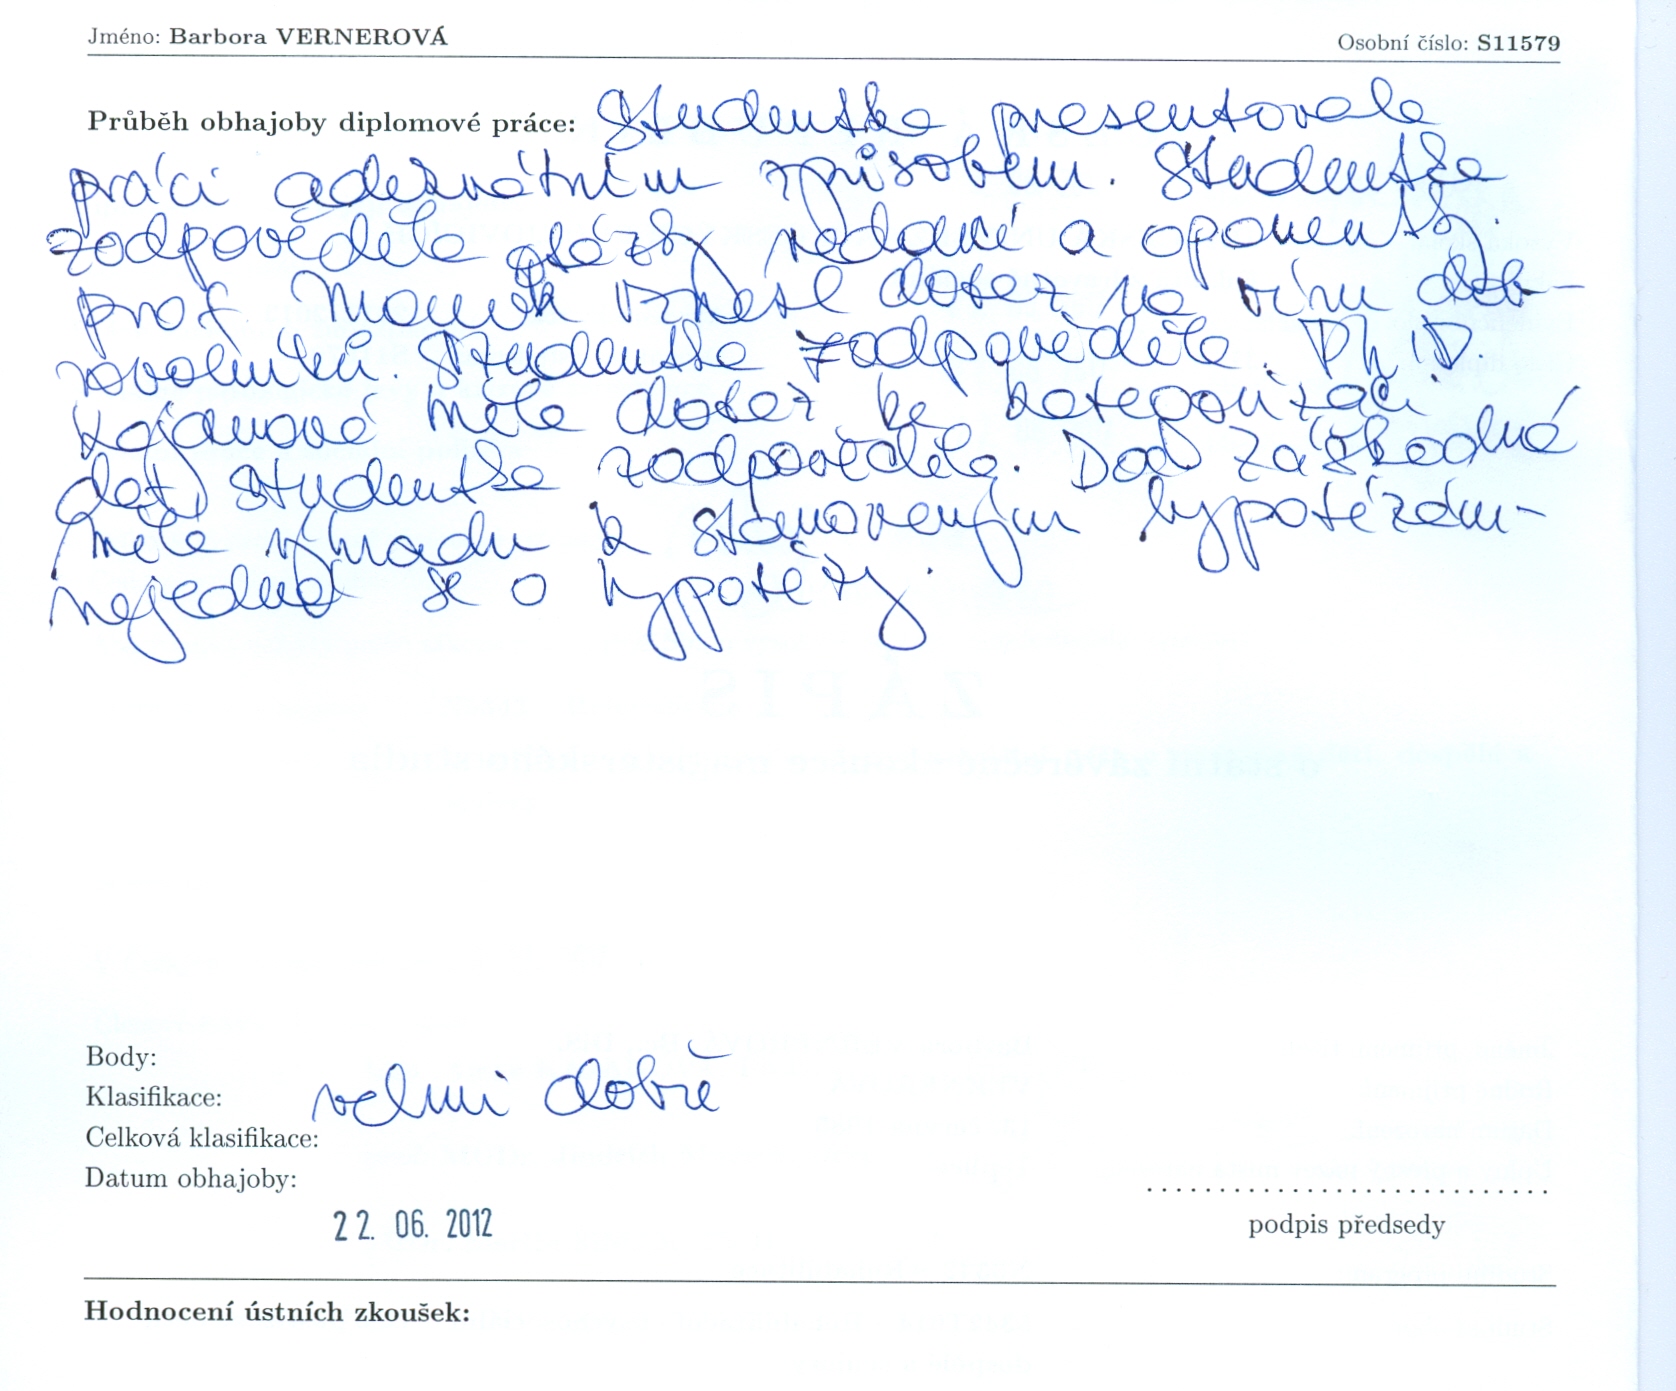 Jméno: Barbora VERNEROVÁ Osobní číslo: S11579
Průběh obhajoby diplomové práce: Studentka presentovala
práci adekvátním způsobem. Studentka
zodpověděla otázky vedoucí a oponentky.
prof. vznesl dotaz na víru dob-
rovolníků. Studentka zodpověděla. Ph.D.
Kajanová měla dotaz ke kategorizaci
dat, studentka zodpověděla. Doc. Záškodná
měla výhradu k stanoveným hypotézám -
nejedná se o hypotézy.
Body:
Klasifikace: velmi dobře
Celková klasifikace:
Datum obhajoby:
22. 06. 2012
podpis předsedy
Hodnocení ústních zkoušek: